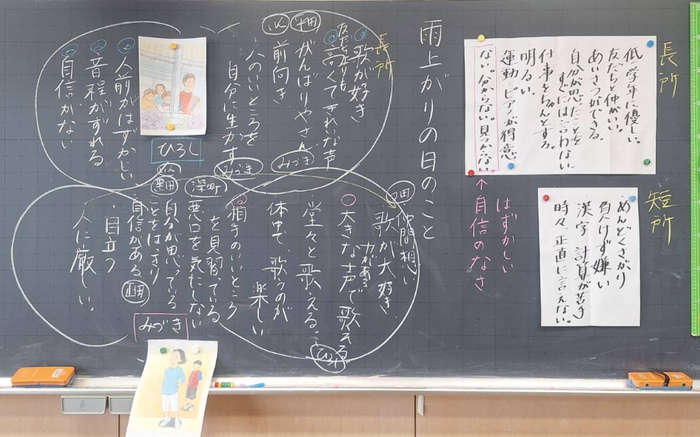 長所
低学年に優しい。
友だちと仲がいい。
あいさつができる。
自分が思ったことを
すぐには言わない。
仕事をちゃんとする。
明るい。
運動、ピアノが得意
ない。分からない。見つからない。
↑自信のなさ
はずかしい
短所
めんどくさがり
負けず嫌い
漢字、計算が苦手
時々、正直に言えない。
雨上がりの日のこと
長所
歌が好き
高くてきれいな声
がんばりやさん
前向き
人のいいところを
自分に生かす
みづき
みづき
人前がはずかしい
音程がずれる
自信がない
ひろし
仲間想い
歌が大好き
大きな声で歌える
堂々と歌える。
体中で、歌うのが
楽しい
相手のいいところ
を見習っている
悪口を気にしない
自分が思っている
ことをはっきり
自信がある
目立つ
人に厳しい。
みづき